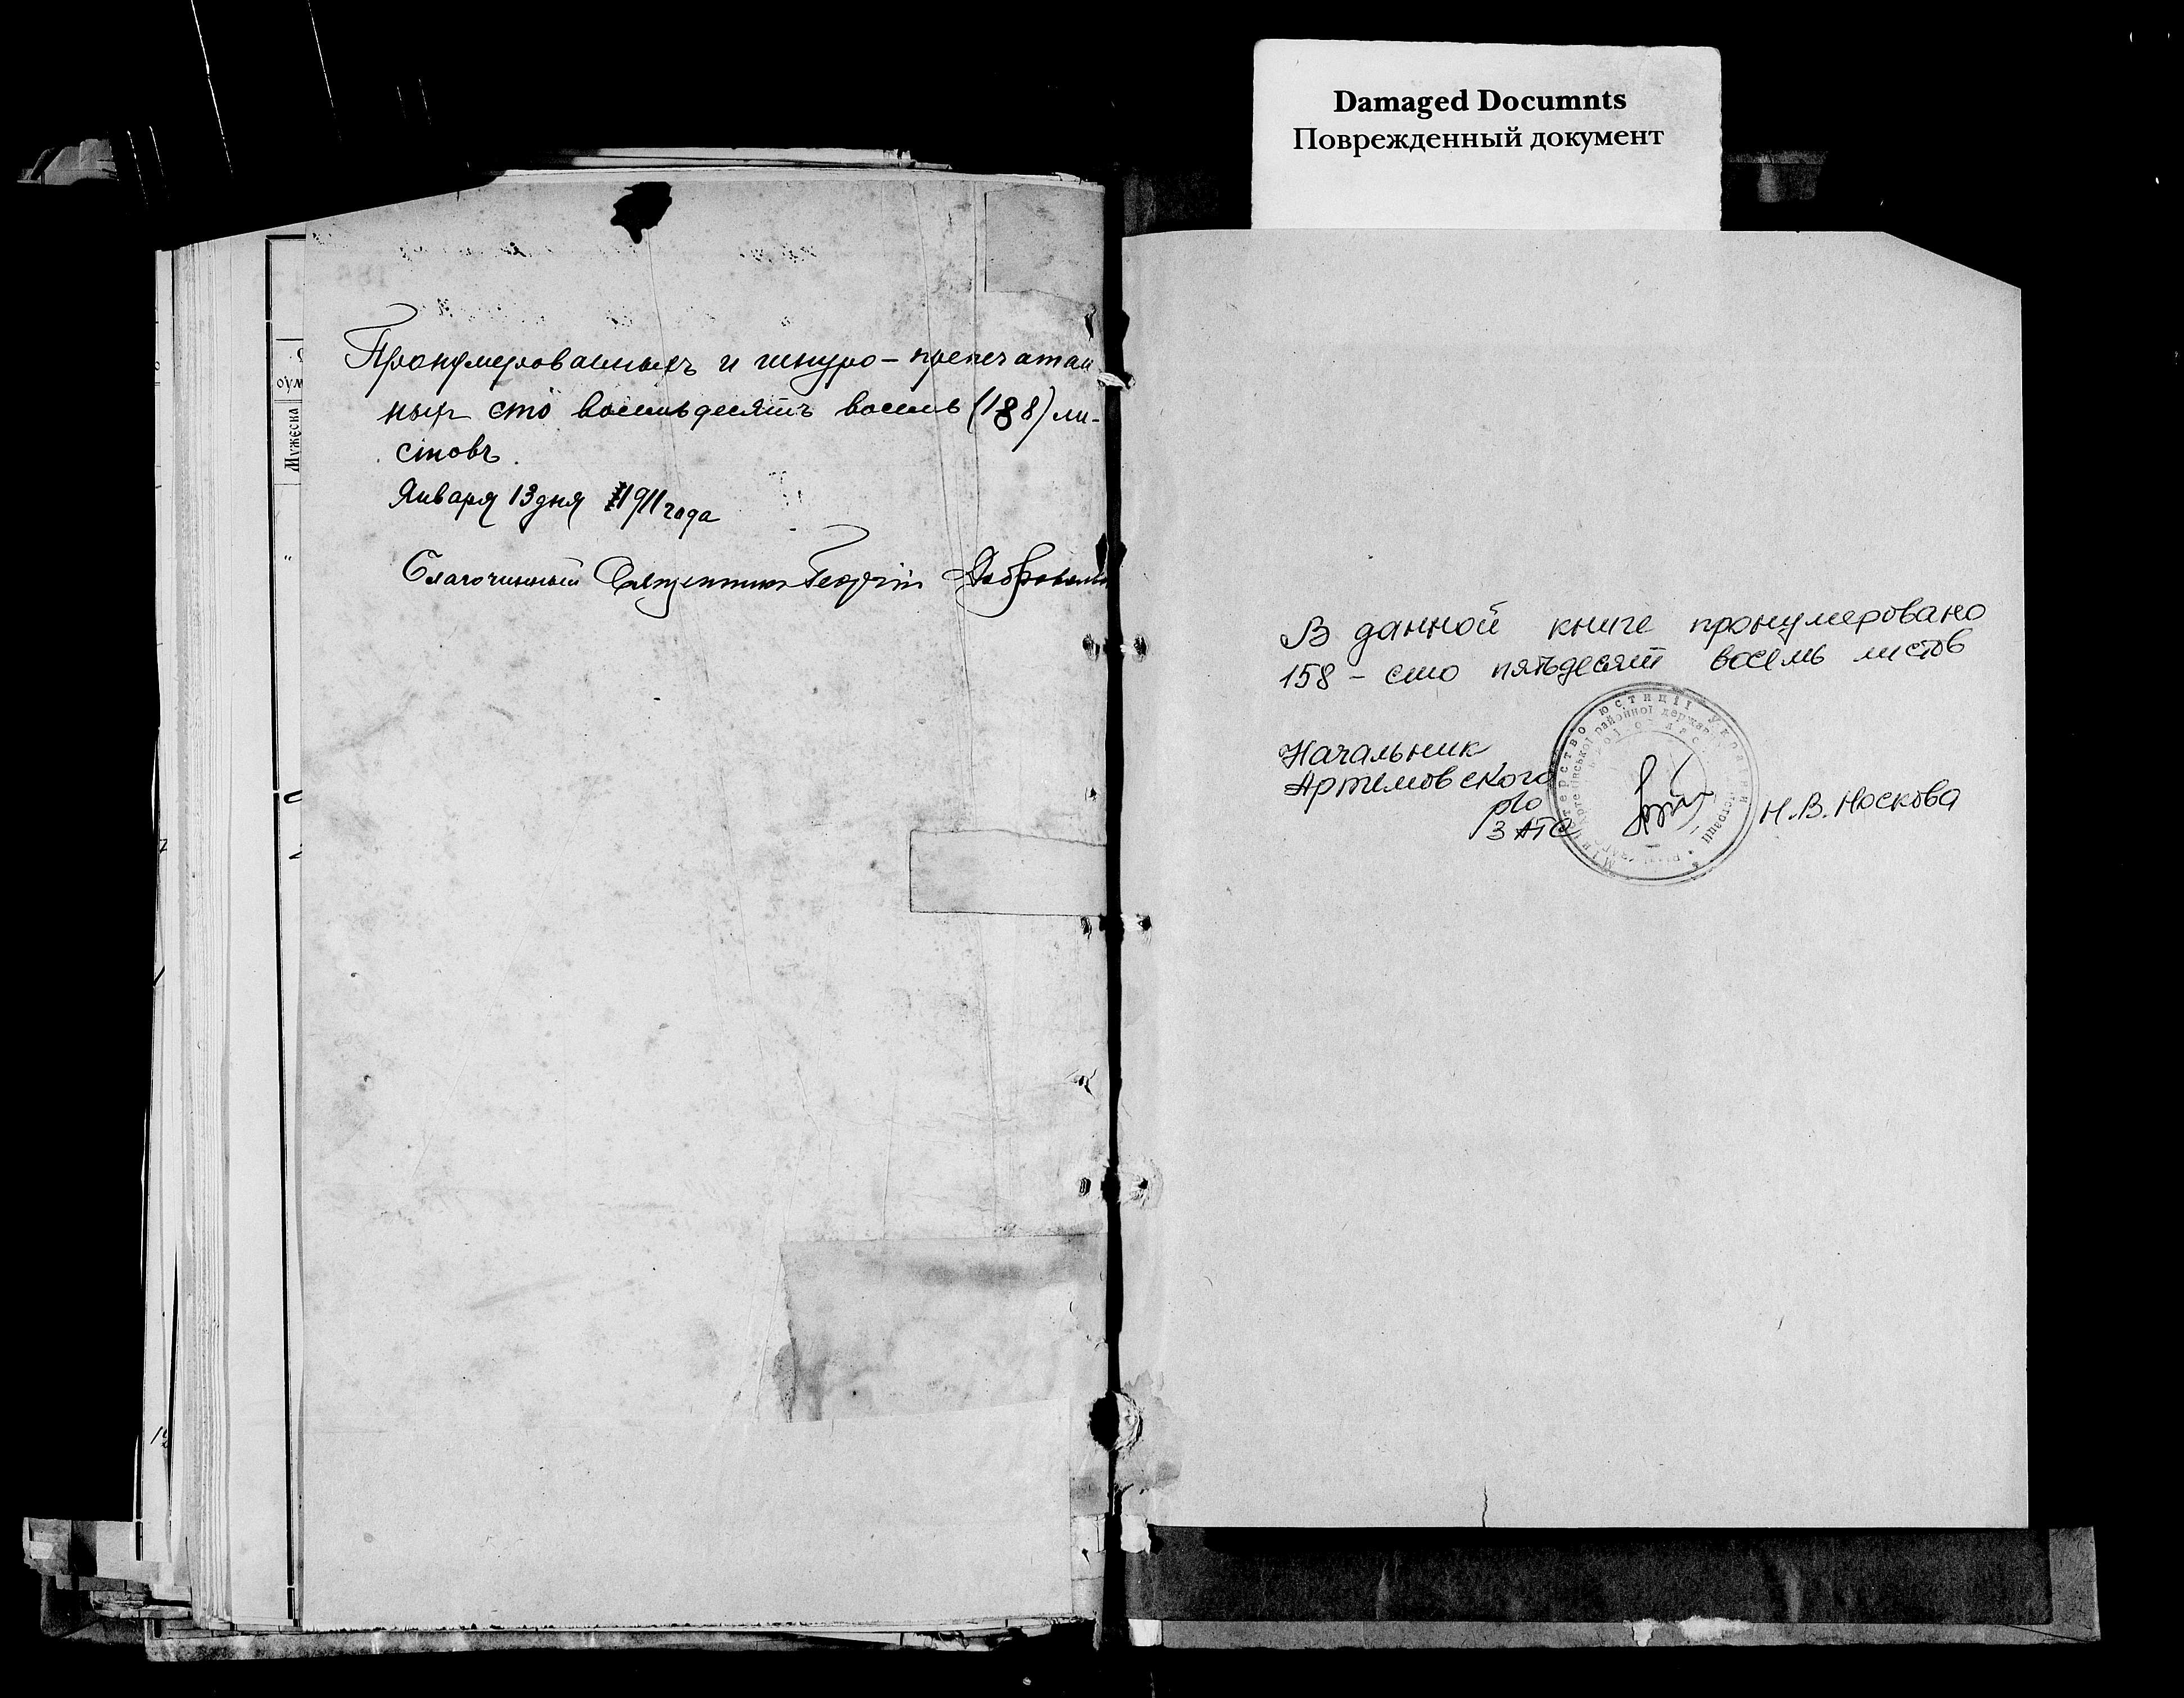 Damaged Documnts
Поврежденный документ
Пронумерованныхъ и шнуро-препечатан
ныхъ сто восемьдесятъ восемь (188) ли-
стовъ.
Января 13 дня 1911 года
Благочинный Священникъ Георгій
Мужеска
В данной книге пронумеровано
158 - сто пятьдесят восемь листов
Начальник
Артемовского
р/о
ЗАГС
Н.В. Носкова
юстиції України